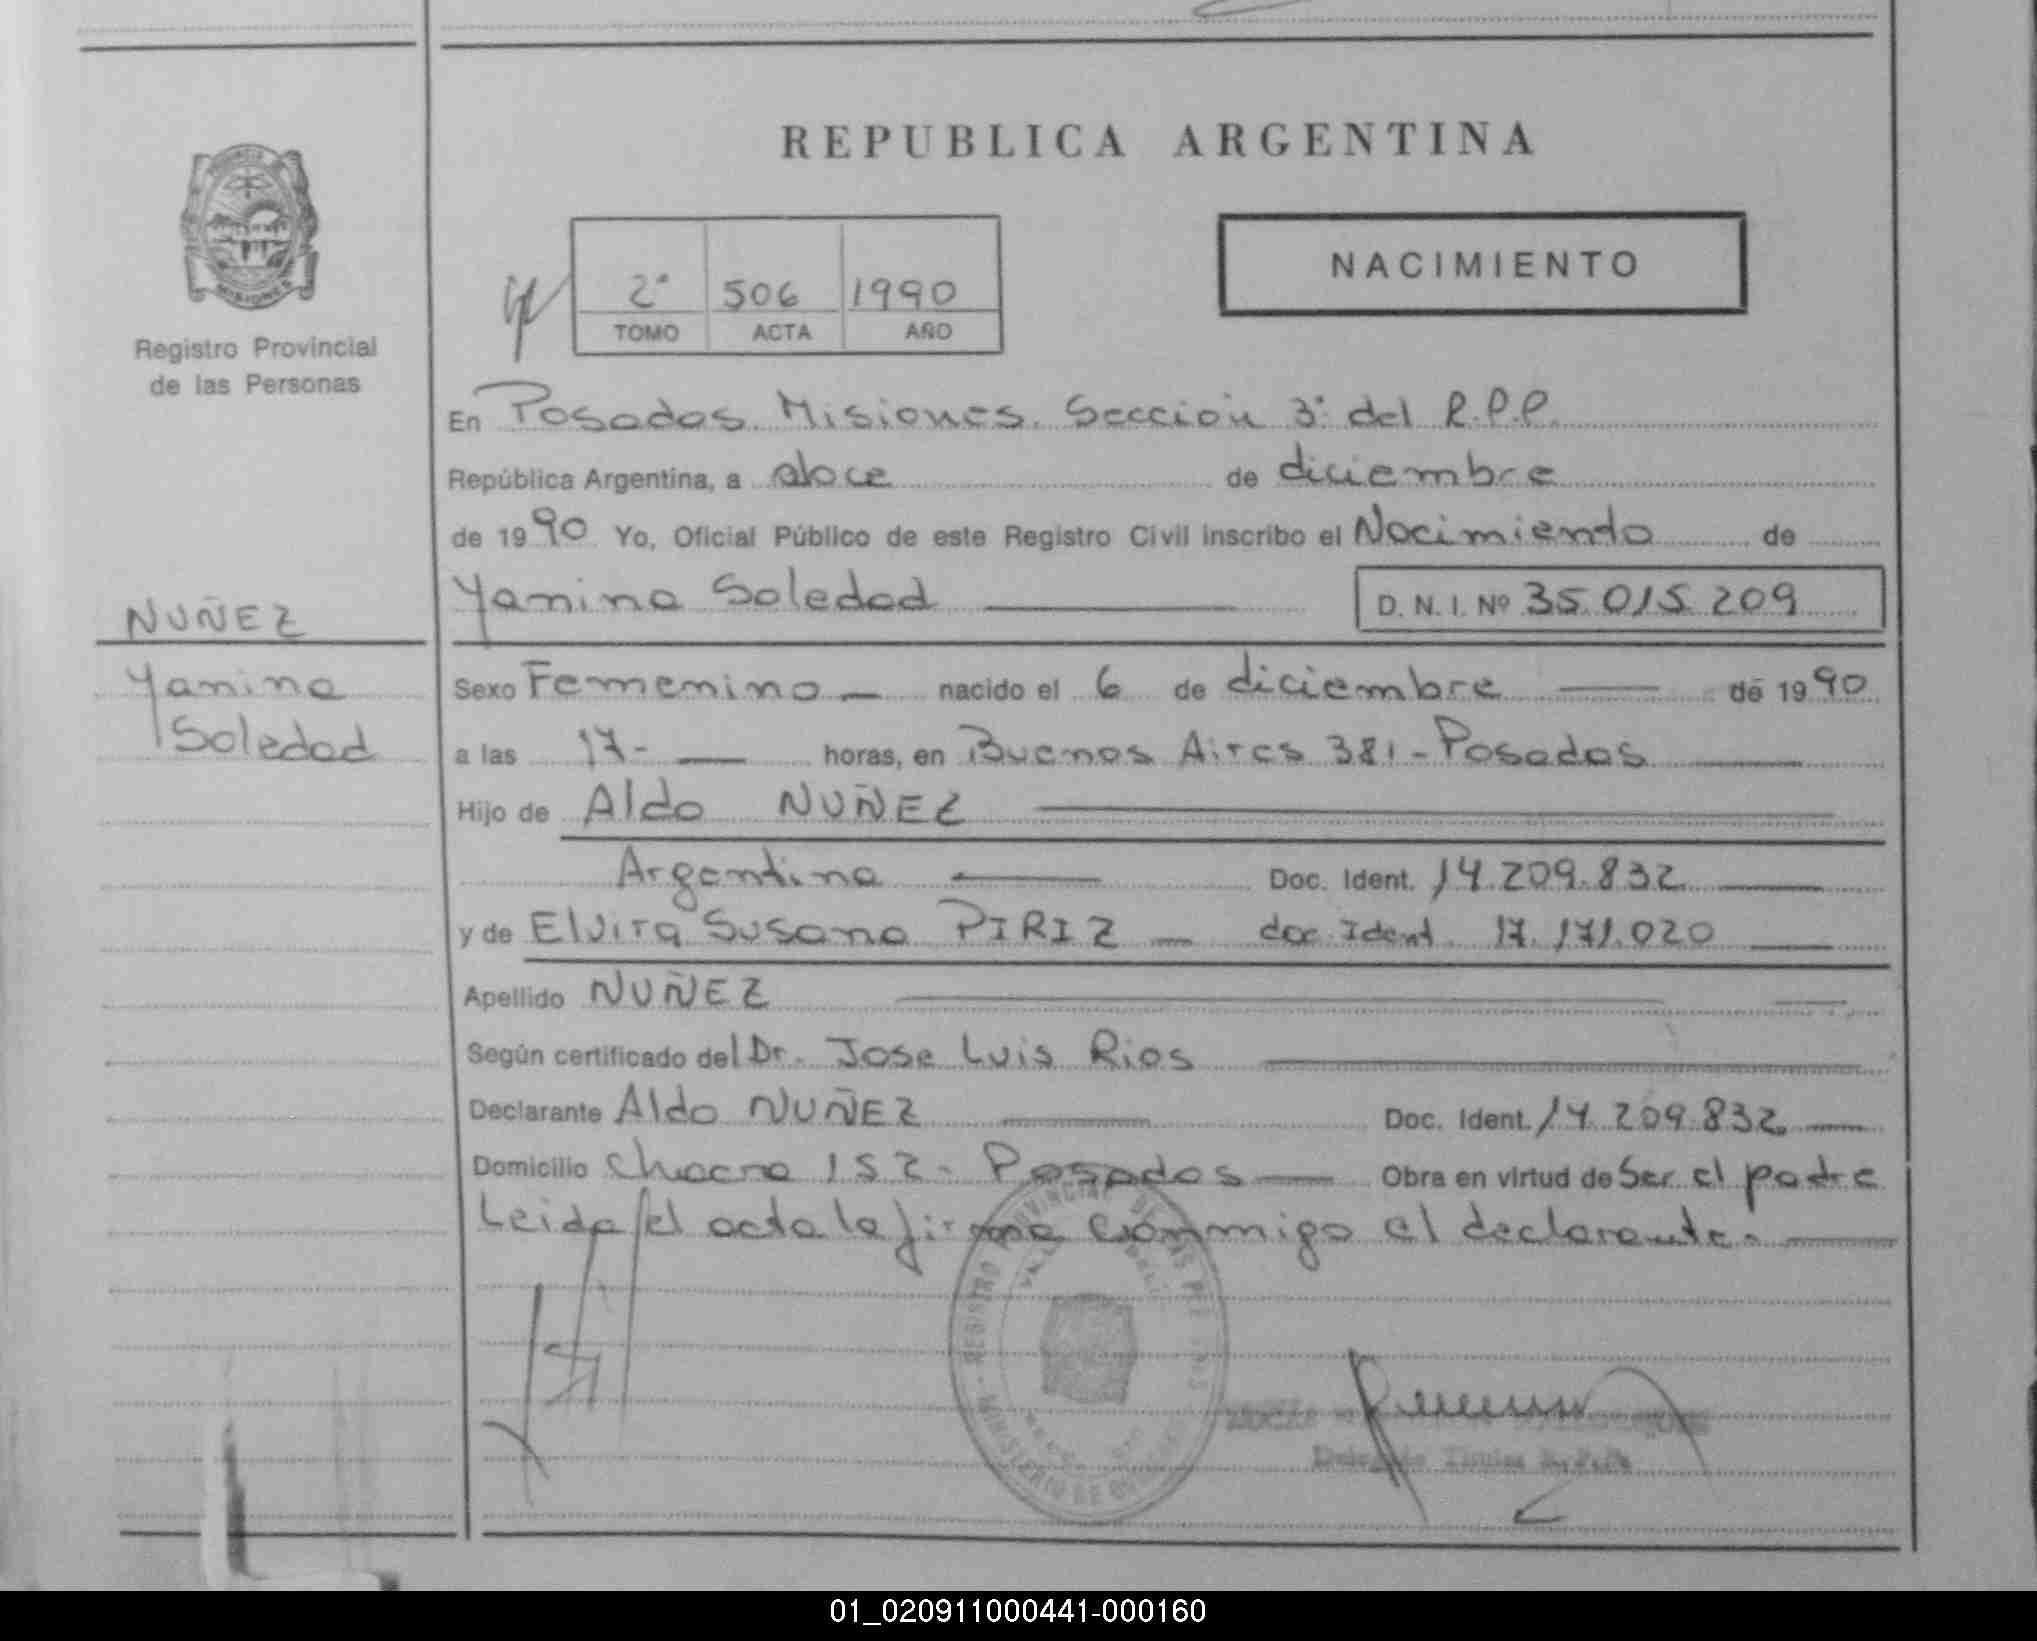 REPUBLICA ARGENTINA
MISIONES
Registro Provincial
de las Personas
2° 506 1990
TOMO ACTA AÑO
NACIMIENTO
En Posadas. Misiones. Sección 3ª del R.P.P.
República Argentina, a doce de diciembre
de 1990 Yo, Oficial Público de este Registro Civil inscribo el Nacimiento de
Yanina Soledad D. N. I. Nº 35.015.209
NUÑEZ
Yanina
Soledad
Sexo Femenino nacido el 6 de diciembre de 1990
a las 17- horas, en Buenos Aires 381 - Posadas
Hijo de Aldo NUÑEZ
Argentina Doc. Ident. 14.209.832
y de Elvira Susana PIRIZ doc. Ident. 17.171.020
Apellido NUÑEZ
Según certificado del Dr. Jose Luis Rios
Declarante Aldo NUÑEZ Doc. Ident. 14.209.832
Domicilio Chacra 152 - Posadas Obra en virtud de Ser el padre
Leida el acta la firma conmigo el declarante.
REGISTRO PROVINCIAL DE LAS PERSONAS
MINISTERIO DE GOBIERNO
01_020911000441-000160